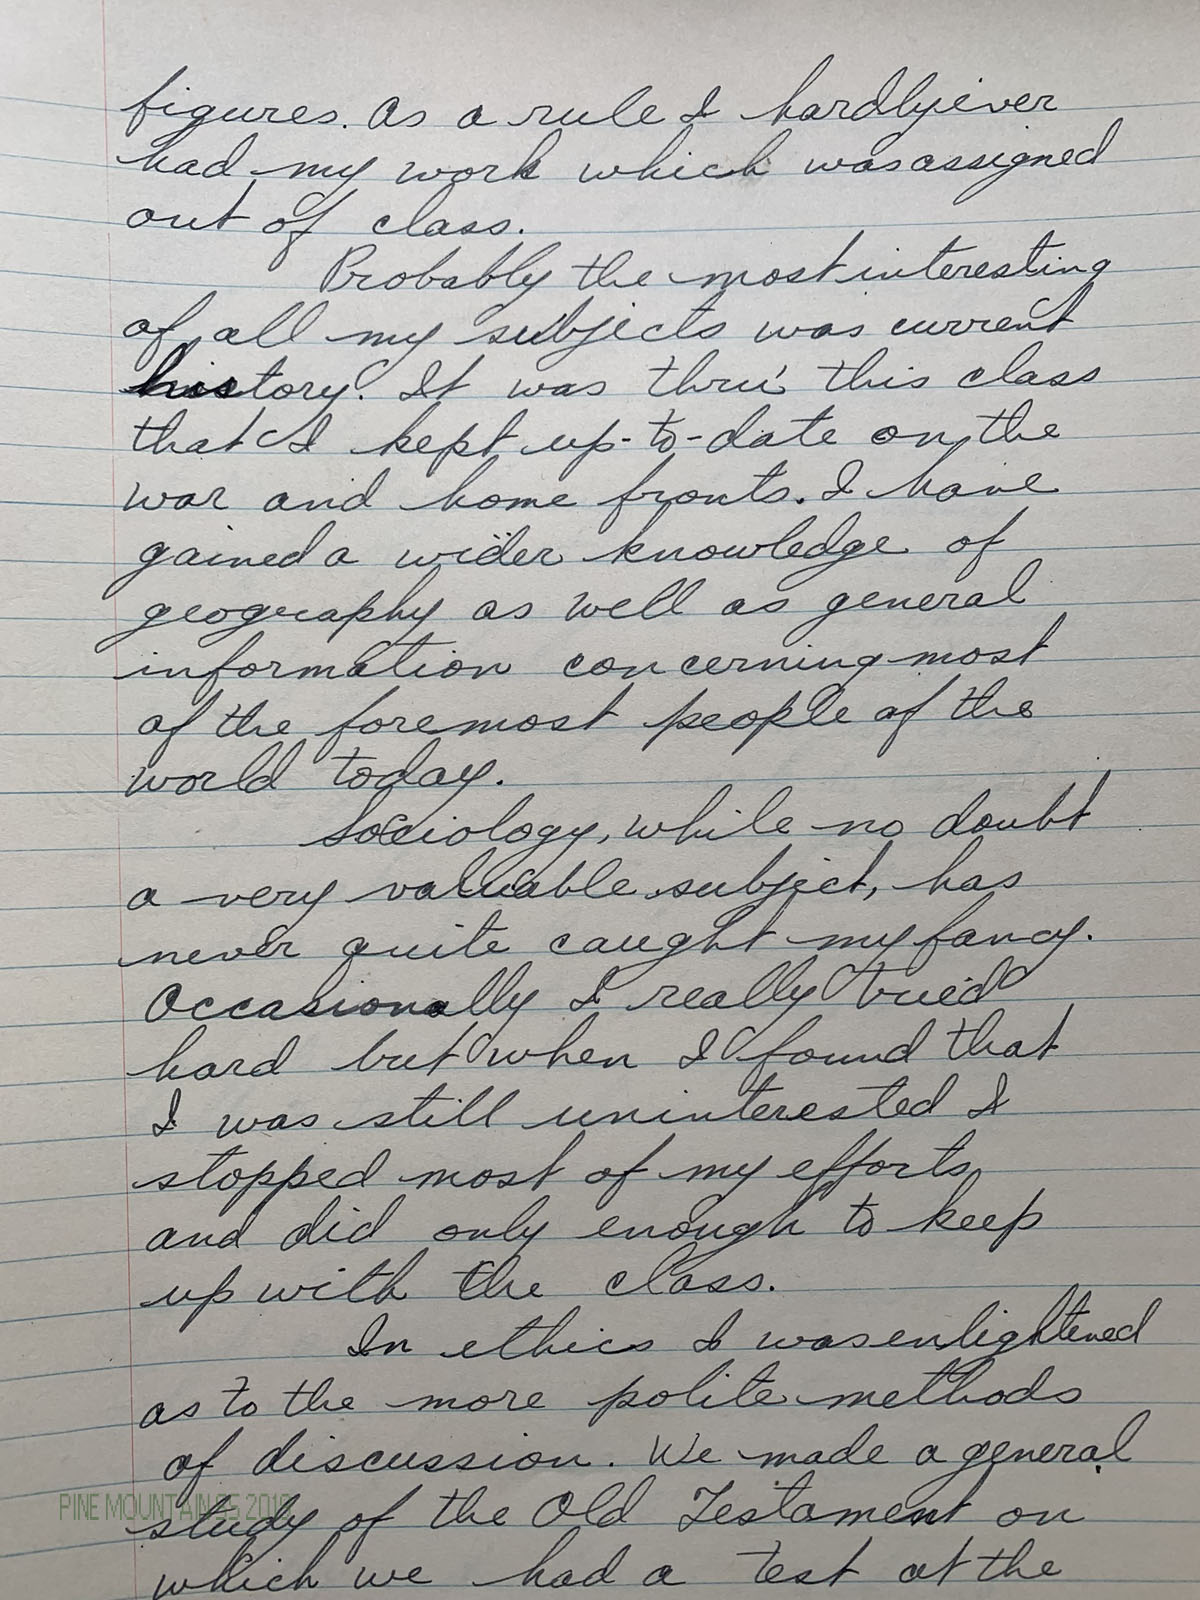 figures. As a rule I hardly ever
had my work which was assigned
out of class.
Probably the most interesting
of all my subjects was current
history. It was thru' this class
that I kept up-to-date on the
war and home fronts. I have
gained a wider knowledge of
geography as well as general
information concerning most
of the foremost people of the
world today.
Sociology, while no doubt
a very valuable subject, has
never quite caught my fancy.
Occasionally I really tried
hard but when I found that
I was still uninterested I
stopped most of my efforts
and did only enough to keep
up with the class.
In ethics I was enlightened
as to the more polite methods
of discussion. We made a general
study of the Old Testament on
which we had a test at the
PINE MOUNTAIN SS 2019